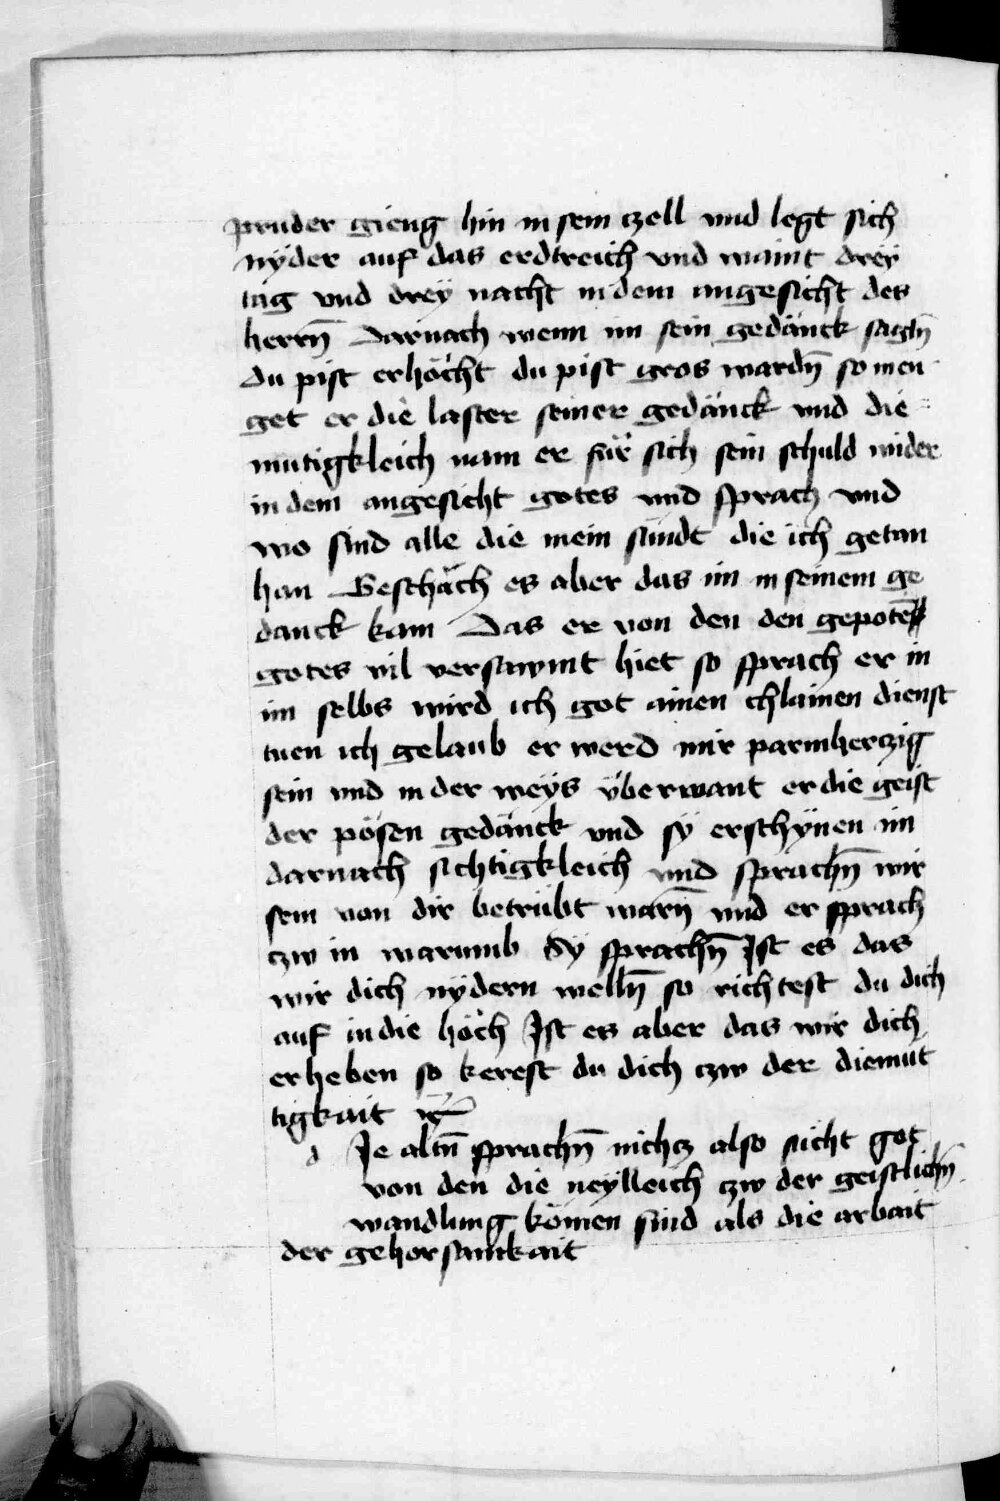 pruder gieng hin in sein czell vnd legt sich
nyder auf das erdtreich vnd waint dreÿ
tag vnd dreÿ nacht in dem angesicht des
herrn̄ Darnach wenn im sein gedänck sagtn̄
du pist erhöcht du pist gros wardn̄ so men
get er die laster seiner gedänck vnd die
mutigkleich nam er für sich sein schuld wider
in dem angesicht gotes vnd sprach vnd
wo sind alle die mein sündt die ich getan
han Beschäch es aber das im in seinem ge
danck kam Das er von den den gepoten̄
gotes vil versawmt hiet so sprach er in
im selbs wird ich got ainen chlainen dienst
tuen ich gelaub er werd mir parmherczig
sein vnd in der weÿs vberwant er die geist
der pösen gedänck vnd sÿ erschÿnen im
darnach sichtigkleich vnd sprachn̄ wir
sein von dir betrübt warn̄ vnd er sprach
czw in warumb Sy sprachn̄ Ist es das
wir dich nÿdern welln̄ so richtest du dich
auf in die höch Ist es aber das wir dich
erheben so kerest du dich czw der diemut
tigkait ꝛc̄
d Ie altn̄ sprachn̄ nichcz also sücht got
von den die neÿlleich czw der geistlichn̄
wandlung kömen sind als die arbait
der gehorsamkait